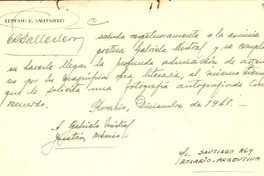 ERNESTO R. BALLESTERO
saluda respetuosamente a la eximia
poetisa Gabriela Mistral y se complace
en hacerle llegar la profunda admiración de
no por su magnífica obra literaria, al mismo tiempo
que le solicita una fotografía autografiada como
recuerdo.
Rosario, Diciembre de 1948.-
A Gabriela Mistral
Yucatán, México
S/c. SANTIAGO 869
ROSARIO-ARGENTINA